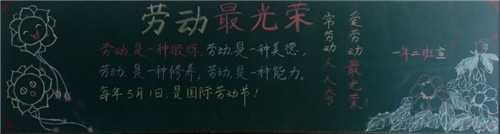 劳动最光荣
劳动是一种锻炼，劳动是一种美德，
劳动是一种修养，劳动是一种能力。
每年5月1日，是国际劳动节！
爱劳动最光荣！
常劳动人人夸
一年二班宣